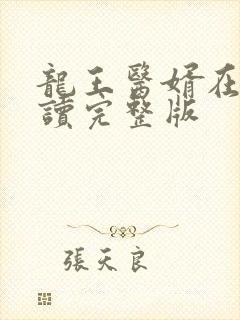 龍王醫婿在
讀完整版
張天良